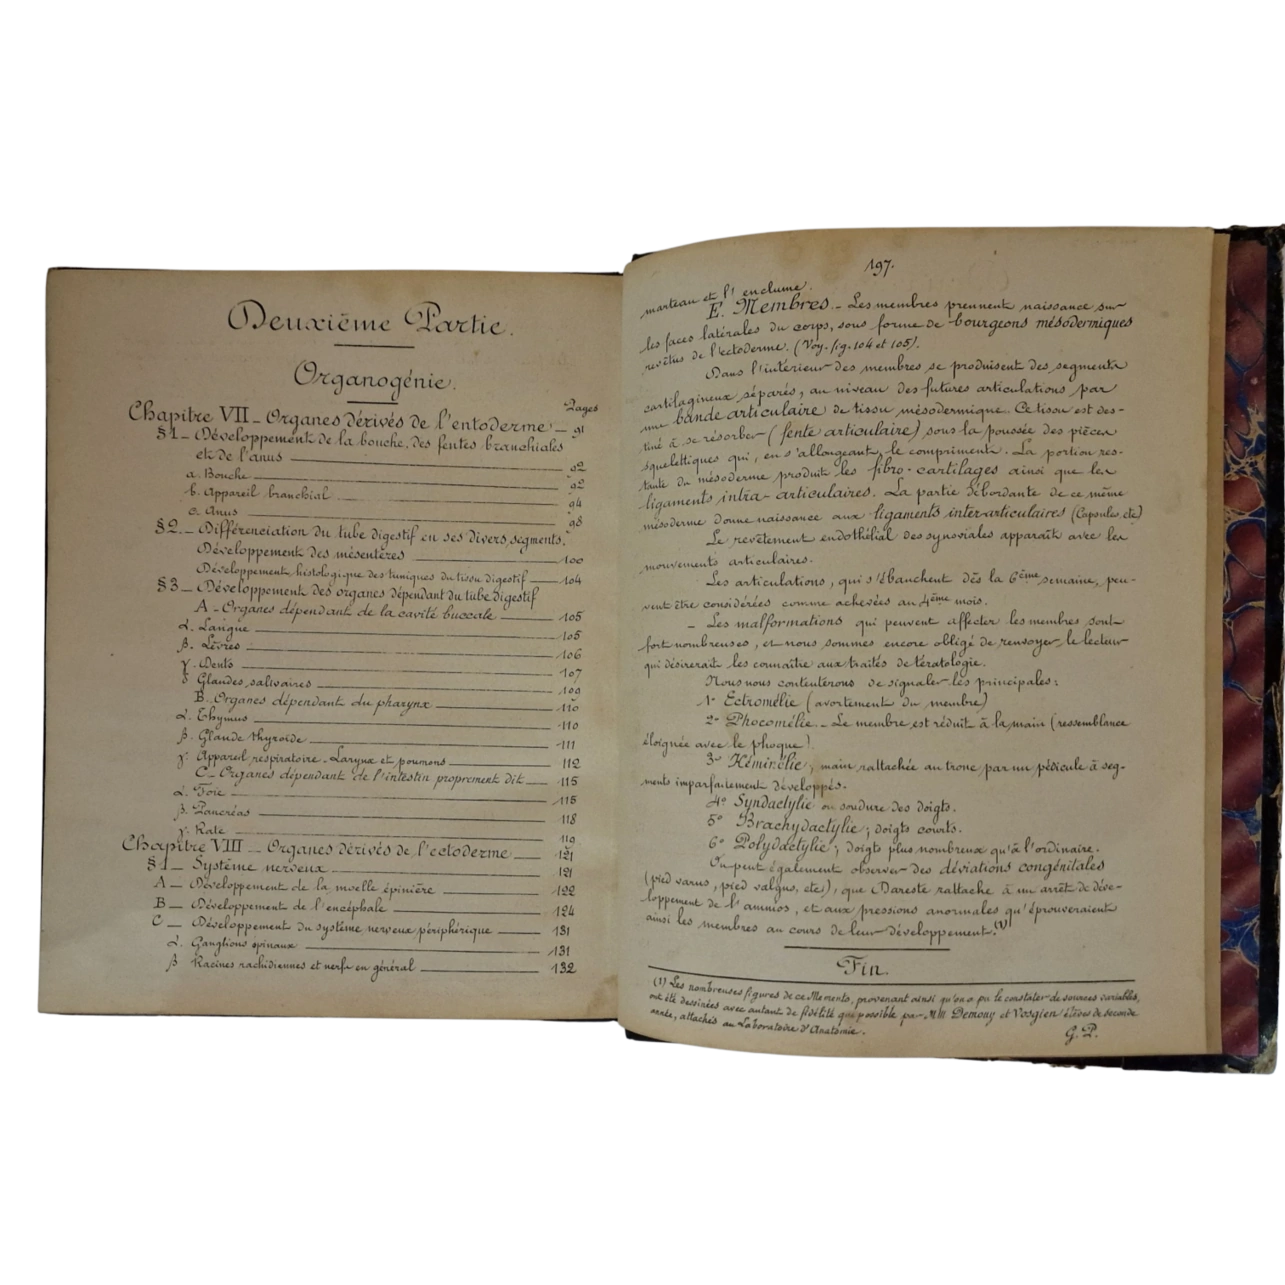 Deuxième Partie.
Organogénie.
Pages
Chapitre VII _ Organes dérivés de l'entoderme _ 91
§1 _ Développement de la bouche, des fentes branchiales
et de l'anus _ 92
a. Bouche _ 92
b. Appareil branchial _ 94
c. Anus _ 98
§2. _ Différenciation du tube digestif en ses divers segments.
Développement des mésentères _ 100
Développement histologique des tuniques du tissu digestif _ 104
§3 _ Développement des organes dépendant du tube digestif
A - Organes dépendant de la cavité buccale _ 105
α. Langue _ 105
β. Lèvres _ 106
γ. Dents _ 107
δ Glandes salivaires _ 109
B. Organes dépendant du pharynx _ 110
α. Thymus _ 110
β. Glande thyroïde _ 111
γ. Appareil respiratoire - Larynx et poumons _ 112
C - Organes dépendant de l'intestin proprement dit _ 115
α. Foie _ 115
β. Pancréas _ 118
γ. Rate _ 119
Chapitre VIII _ Organes dérivés de l'ectoderme _ 121
§1 _ Système nerveux _ 121
A _ Développement de la moelle épinière _ 122
B _ Développement de l'encéphale _ 124
C _ Développement du système nerveux périphérique _ 131
α. Ganglions spinaux _ 131
β Racines rachidiennes et nerfs en général _ 132
197.
marteau et l'enclume.
E. Membres. _ Les membres prennent naissance sur
les faces latérales du corps, sous forme de bourgeons mésodermiques
revêtus de l'ectoderme. (Voy. fig. 104 et 105).
Dans l'intérieur des membres se produisent des segments
cartilagineux séparés, au niveau des futures articulations par
une bande articulaire de tissu mésodermique. Ce tissu est des-
tiné à se résorber (fente articulaire) sous la poussée des pièces
squelettiques qui, en s'allongeant, le compriment. La portion res-
tante du mésoderme produit les fibro-cartilages ainsi que les
ligaments intra-articulaires. La partie débordante de ce même
mésoderme donne naissance aux ligaments inter-articulaires (Capsules etc)
Le revêtement endothélial des synoviales apparaît avec les
mouvements articulaires.
Les articulations, qui s'ébauchent dès la 6ème semaine, peu-
vent être considérées comme achevées au 4ème mois.
_ Les malformations qui peuvent affecter les membres sont
fort nombreuses, et nous sommes encore obligé de renvoyer le lecteur
qui désirerait les connaître aux traités de tératologie.
Nous nous contenterons de signaler les principales:
1° Ectromélie (avortement du membre)
2° Phocomélie. _ Le membre est réduit à la main (ressemblance
éloignée avec le phoque)
3° Hémimélie; main rattachée au tronc par un pédicule à seg-
ments imparfaitement développés.
4° Syndactylie ou soudure des doigts.
5° Brachydactylie; doigts courts.
6° Polydactylie; doigts plus nombreux qu'à l'ordinaire.
On peut également observer des déviations congénitales
(pied varus, pied valgus, etc), que Dareste rattache à un arrêt de déve-
loppement de l'amnios, et aux pressions anormales qu'éprouveraient
ainsi les membres au cours de leur développement. (1)
Fin.
(1) Les nombreuses figures de ce Memento, provenant ainsi qu'on a pu le constater de sources variables,
ont été dessinées avec autant de fidélité que possible par MM Demony et Vosgien élèves de seconde
année, attachés au Laboratoire d'Anatomie.
G. P.